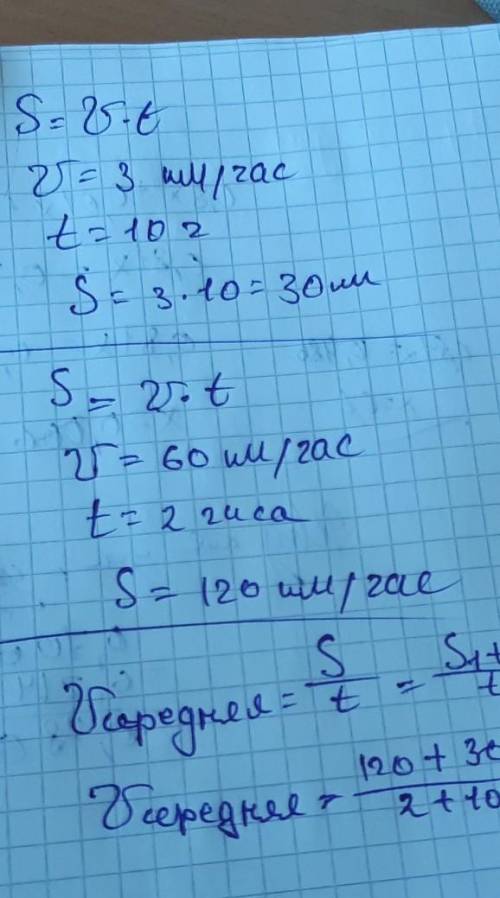 S = v·t
v = 3 км/час
t = 10 ч
S = 3·10 = 30 км
S = v·t
v = 60 км/час
t = 2 часа
S = 120 км/час
v средняя = S/t = S1+/t
v средняя = 120 + 30/2 + 10